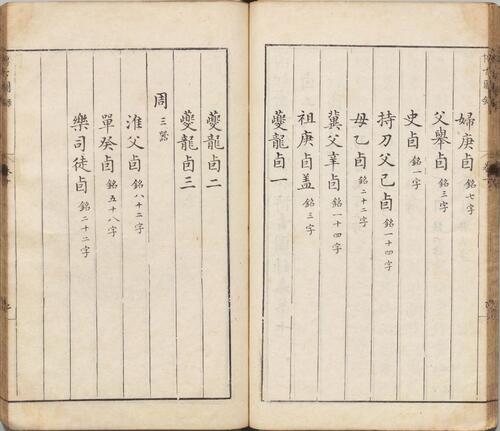 婦庚卣 銘七字
父舉卣 銘三字
史卣 銘一字
持刀父己卣 銘一十四字
母乙卣 銘二十二字
冀父辛卣 銘一十四字
祖庚卣蓋 銘三字
夔龍卣一
夔龍卣二
夔龍卣三
周 三器
淮父卣 銘八十二字
單癸卣 銘五十八字
樂司徒卣 銘二十二字